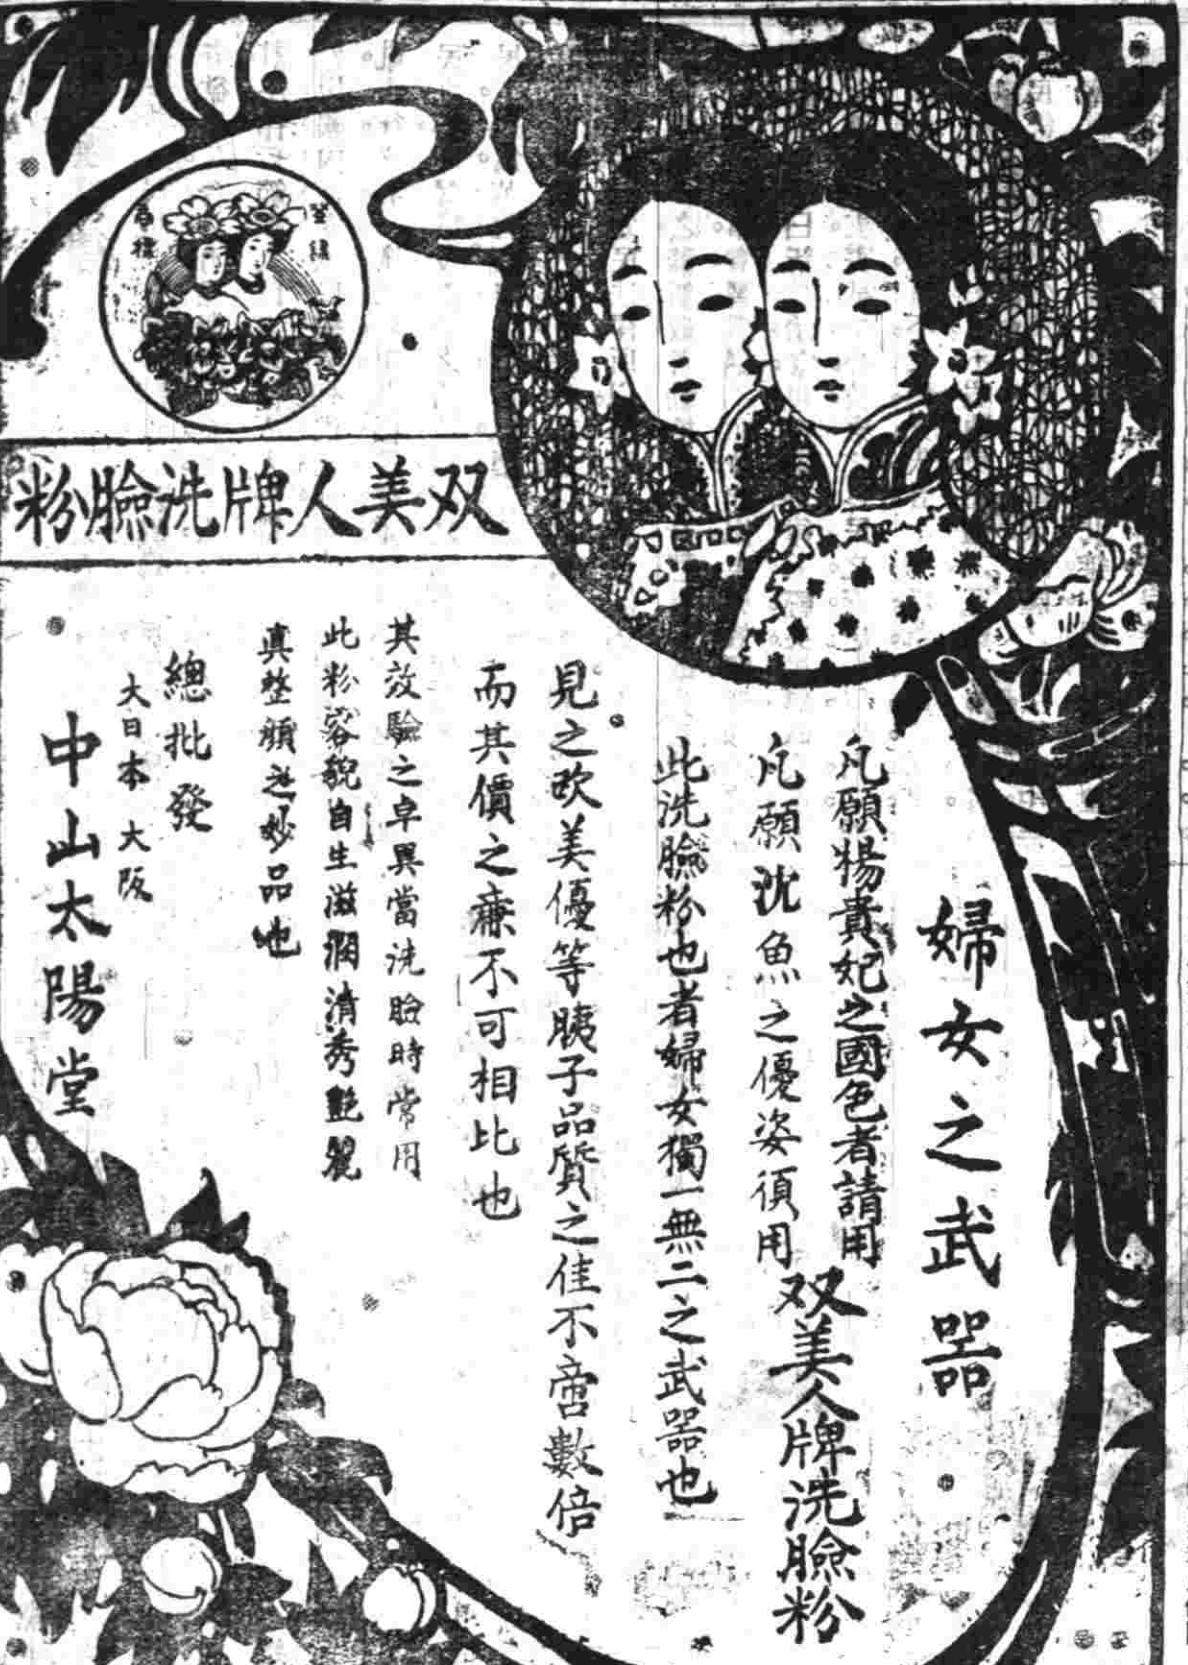 登錄
商標
双美人牌洗臉粉
婦女之武器
凡願楊貴妃之國色者請用
凡願沈魚之優姿須用
双美人牌洗臉粉
此洗臉粉也者婦女獨一無二之武器也
見之欧美優等胰子品質之佳不啻數倍
而其價之廉不可相比也
其效驗之卓異當洗臉時常用
此粉容貌自生滋潤清秀艶麗
真整顏之妙品也
總批發
大日本大阪
中山太陽堂